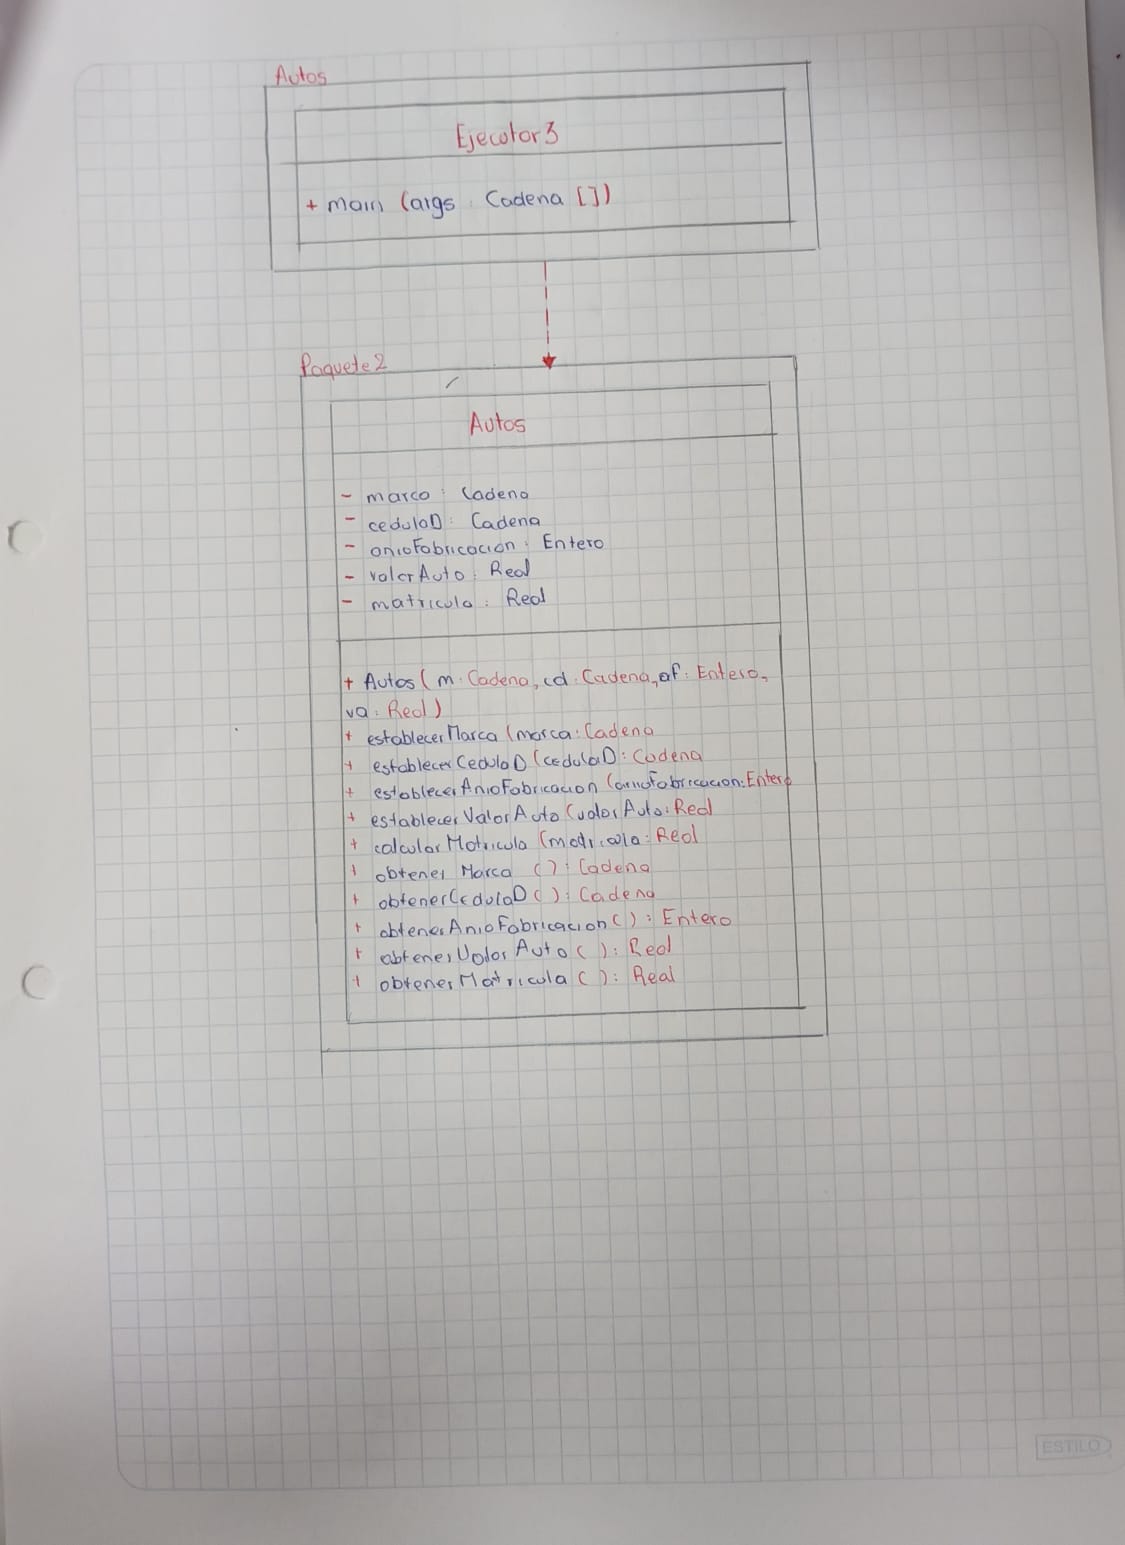 Autos
Ejecutor 3
+ main (args : Cadena [])
Paquete 2
Autos
- marca : Cadena
- cedulaD : Cadena
- anioFabricacion : Entero
- valorAuto : Real
- matricula : Real
+ Autos ( m : Cadena, cd : Cadena, af : Entero,
va : Real)
+ establecerMarca (marca : Cadena
+ establecerCedulaD (cedulaD : Cadena
+ establecerAnioFabricacion (anioFabricacion : Entero
+ establecerValorAuto (valorAuto : Real
+ calcularMatricula (matricula : Real
+ obtenerMarca () : Cadena
+ obtenerCedulaD () : Cadena
+ obtenerAnioFabricacion () : Entero
+ obtenerValorAuto () : Real
+ obtenerMatricula () : Real
ESTILO